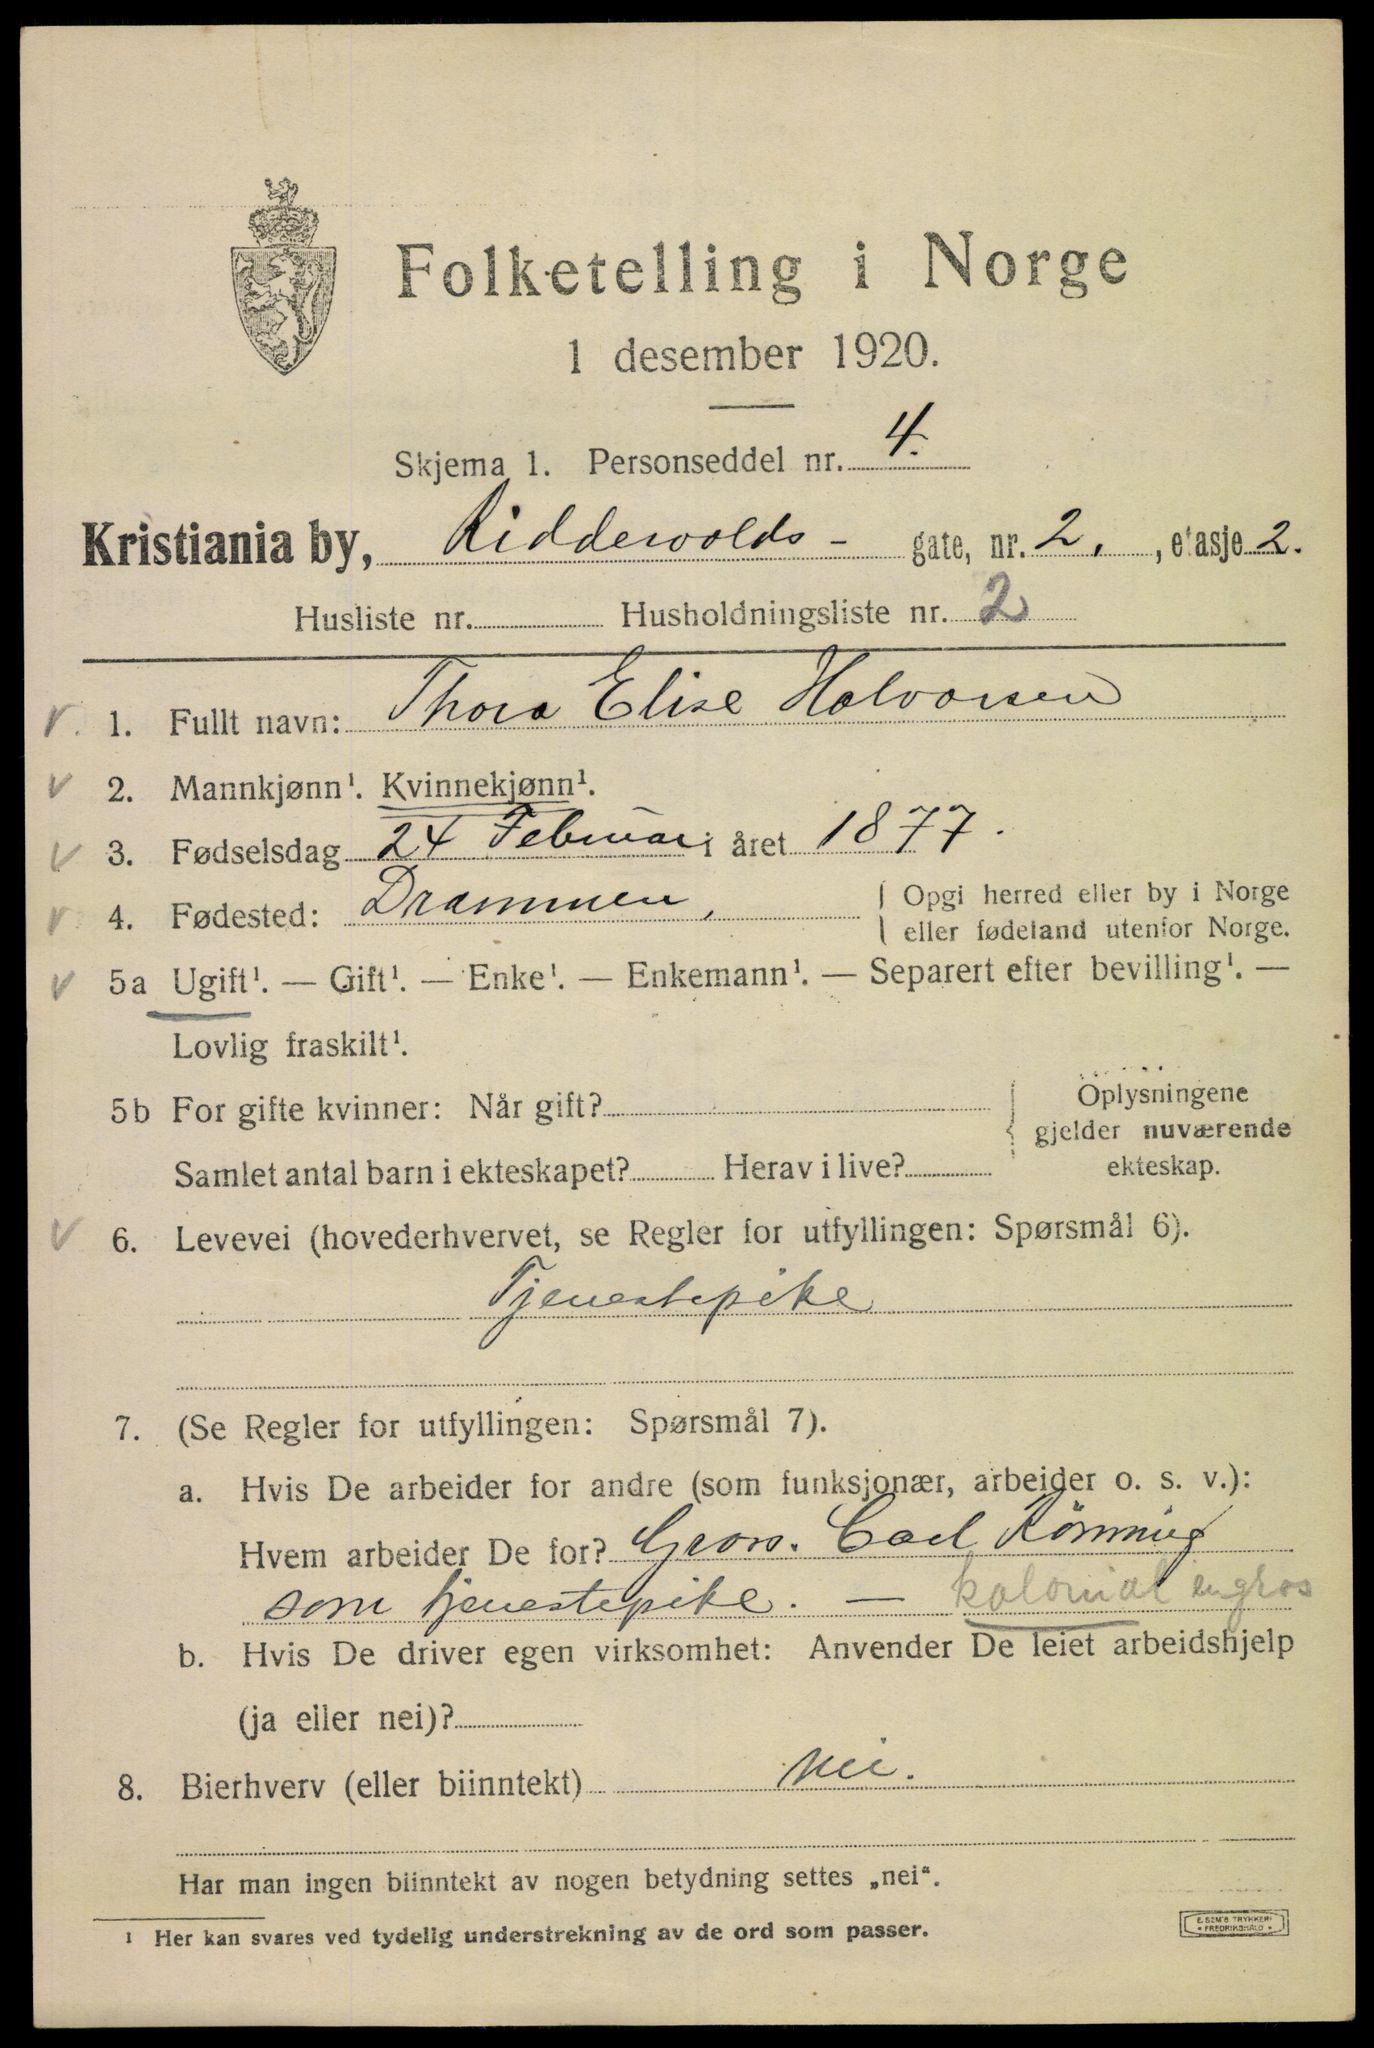 Folketelling i Norge
1 desember 1920.
Skjema 1. Personseddel nr. 4.
Kristiania by, Riddervolds - gate, nr. 2. , etasje 2.
Husliste nr. Husholdningsliste nr. 2
1. Fullt navn: Thora Elise Halvorsen
2. Mannkjønn¹. Kvinnekjønn¹.
3. Fødselsdag 24 Februar i året 1877.
4. Fødested: Drammen, Opgi herred eller by i Norge
eller fødeland utenfor Norge.
5a Ugift¹. — Gift¹. — Enke¹. — Enkemann¹. — Separert efter bevilling¹. —
Lovlig fraskilt¹.
5b For gifte kvinner: Når gift? Oplysningene
gjelder nuværende
Samlet antal barn i ekteskapet? Herav i live? ekteskap.
6. Levevei (hovederhvervet, se Regler for utfyllingen: Spørsmål 6).
Tjenestepike
7. (Se Regler for utfyllingen: Spørsmål 7).
a. Hvis De arbeider for andre (som funksjonær, arbeider o. s. v.):
Hvem arbeider De for? Gross. Carl Rönning
som tjenestepike. — kolonial engros
b. Hvis De driver egen virksomhet: Anvender De leiet arbeidshjelp
(ja eller nei)?
8. Bierhverv (eller biinntekt) nei.
Har man ingen biinntekt av nogen betydning settes „nei“.
¹ Her kan svares ved tydelig understrekning av de ord som passer.
E. SEM'S TRYKKERI
• FREDRIKSHALD •